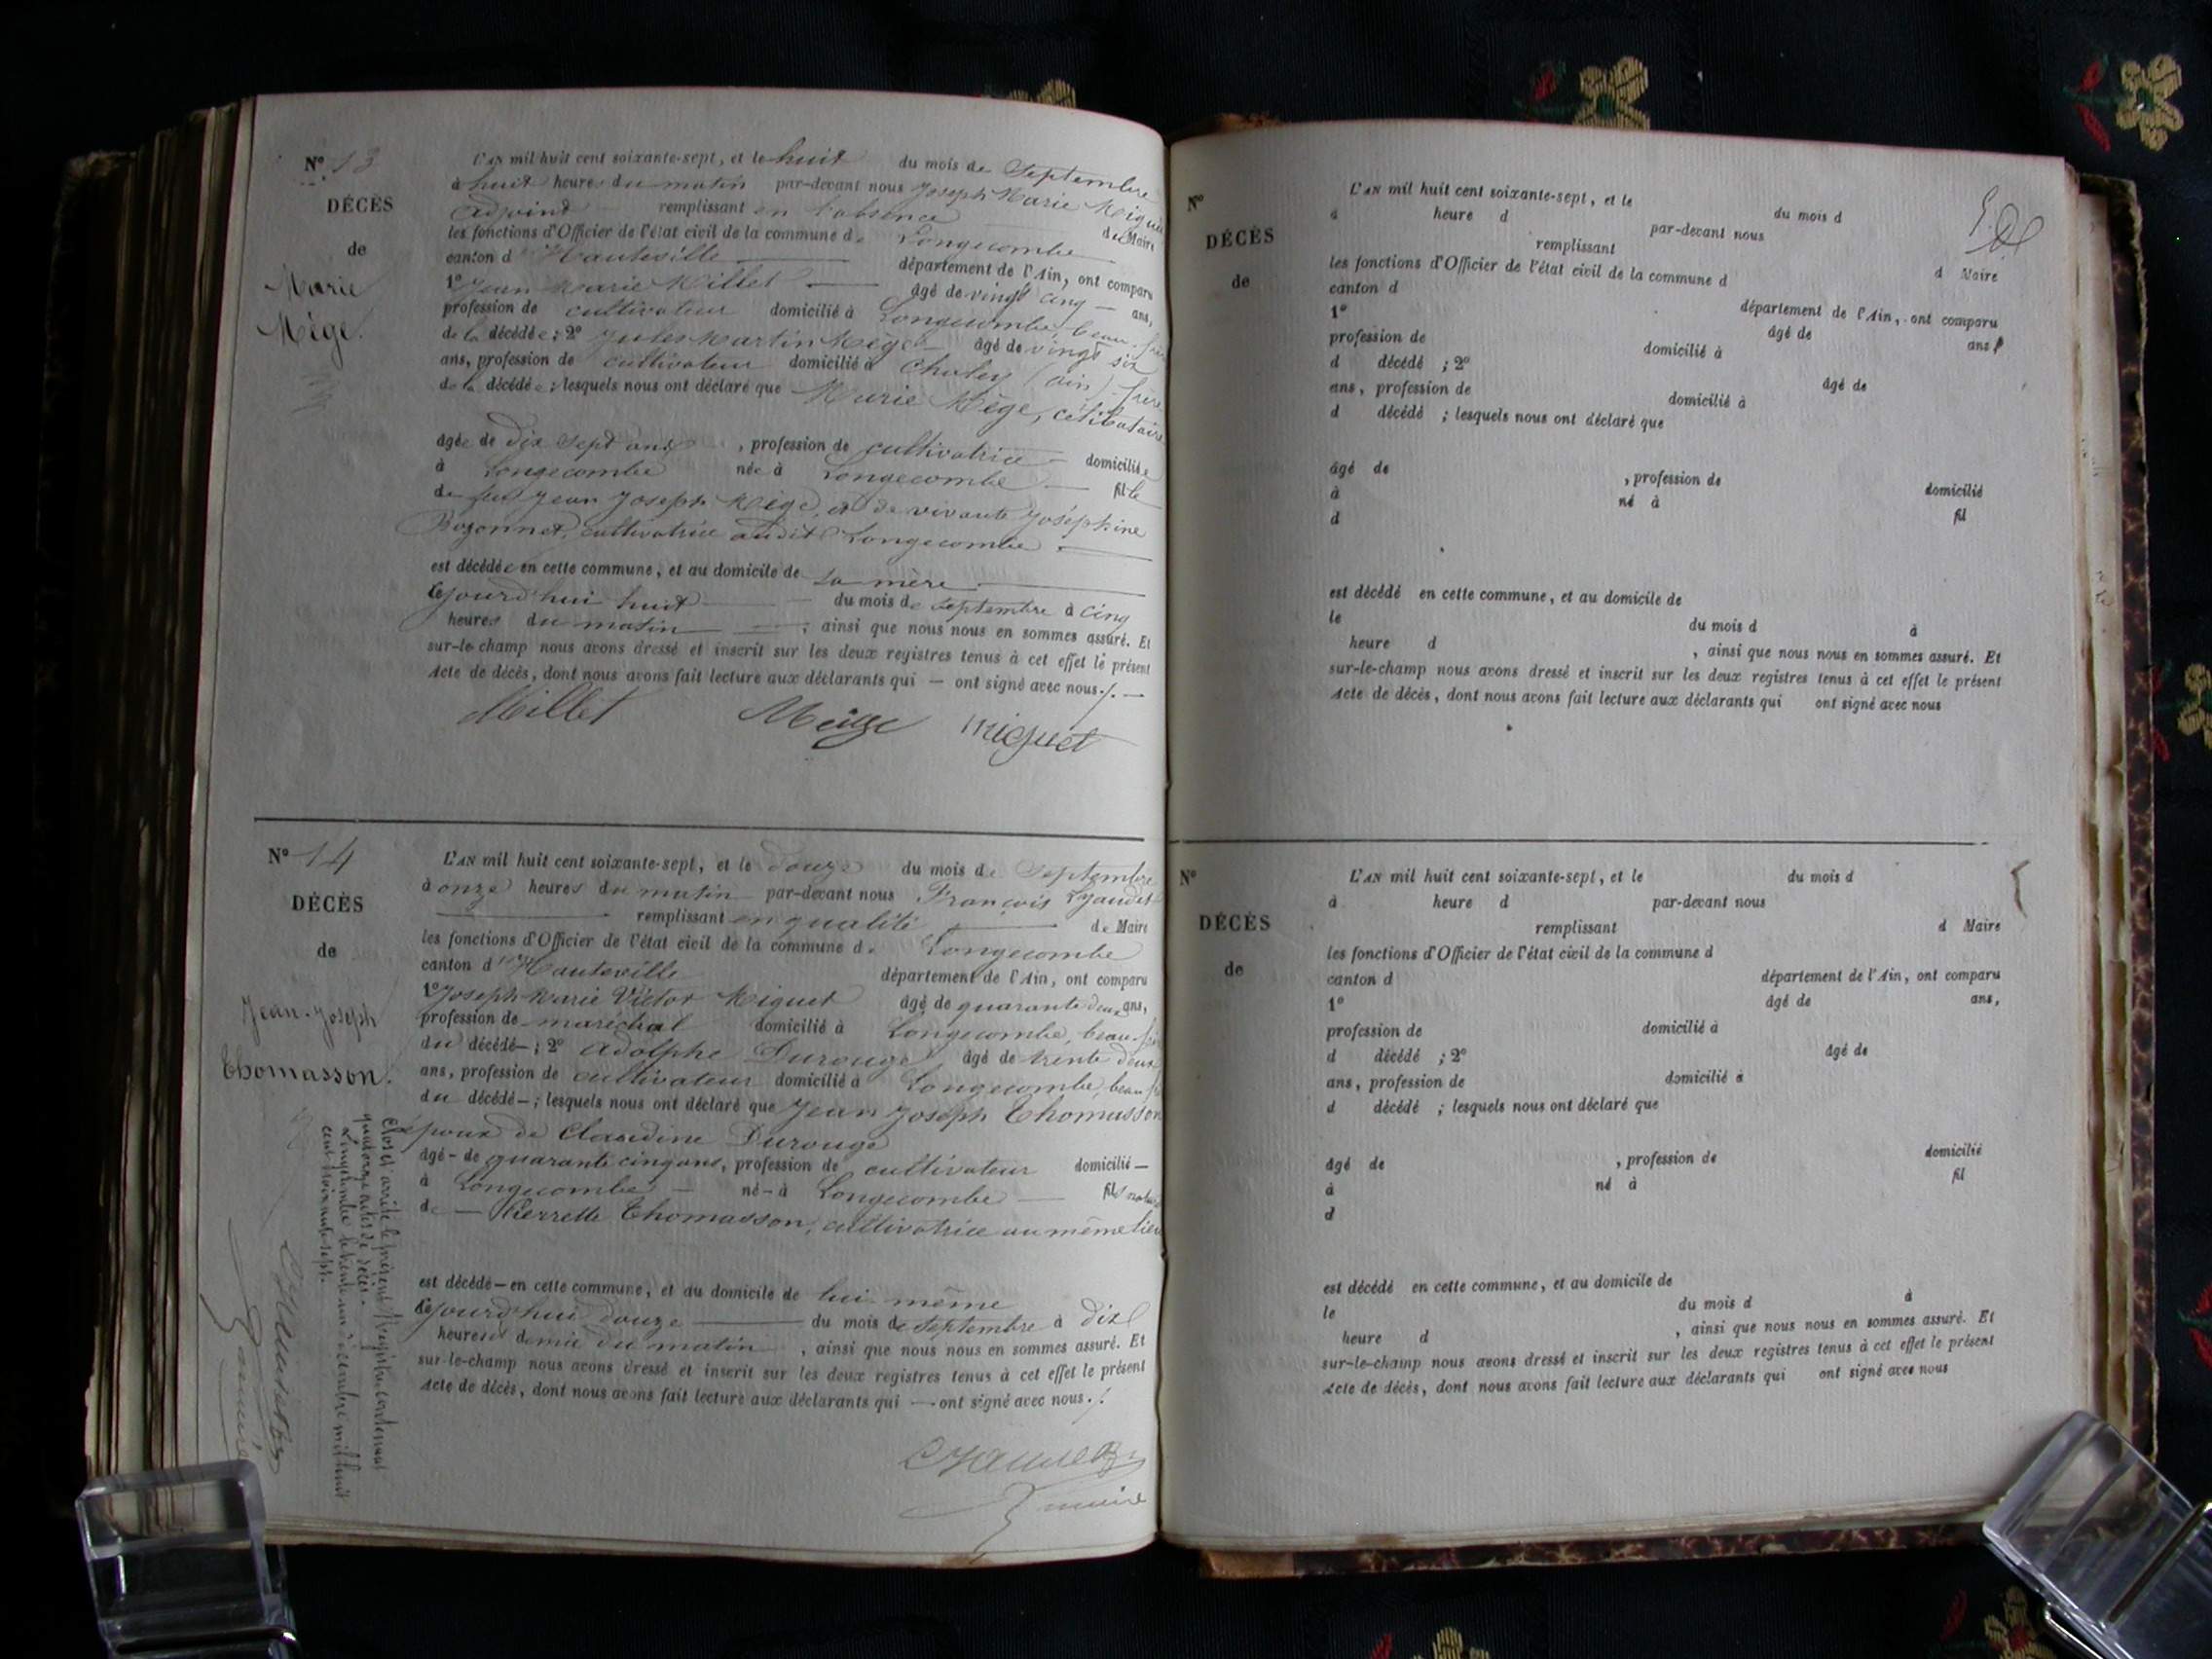 N° 13
DÉCÈS
de
Marie
Mège.
L'AN mil huit cent soixante-sept, et le huit du mois de Septembre
à huit heures du matin par-devant nous Joseph Marie Miguet
Adjoint remplissant en l'absence du Maire
les fonctions d'Officier de l'état civil de la commune de Longecombe
canton d'Hauteville département de l'Ain, ont comparu
1° Jean Marie Millet âgé de vingt cinq ans,
profession de cultivateur domicilié à Longecombe, beau-frère
de la décédée ; 2° Jules Martin Mège âgé de vingt six
ans, profession de cultivateur domicilié à Choley (ain) frère
de la décédée ; lesquels nous ont déclaré que Marie Mège, célibataire
âgée de dix sept ans, profession de cultivatrice domiciliée
à Longecombe née à Longecombe fille
de feu Jean Joseph Mège, et de vivante Joséphine
Bozonnet, cultivatrice audit Longecombe.
est décédée en cette commune, et au domicile de sa mère
cejourd'hui huit du mois de septembre à cinq
heures du matin ; ainsi que nous nous en sommes assuré. Et
sur-le-champ nous avons dressé et inscrit sur les deux registres tenus à cet effet le présent
Acte de décès, dont nous avons fait lecture aux déclarants qui — ont signé avec nous./. —
Millet Mège Miguet
N° 14
DÉCÈS
de
Jean-Joseph
Thomasson.
L'AN mil huit cent soixante-sept, et le douze du mois de Septembre
à onze heures du matin par-devant nous François
remplissant en qualité de Maire
les fonctions d'Officier de l'état civil de la commune de Longecombe
canton d'Hauteville département de l'Ain, ont comparu
1° Joseph Marie Victor Miguet âgé de quarante deux ans,
profession de maréchal domicilié à Longecombe, beau-frère
du décédé — ; 2° Adolphe Durouge âgé de trente deux
ans, profession de cultivateur domicilié à Longecombe, beau frère
du décédé — ; lesquels nous ont déclaré que Jean Joseph Thomasson
époux de Claudine Durouge
âgé - de quarante cinq ans, profession de cultivateur domicilié —
à Longecombe — né - à Longecombe — fils naturel
de — Pierrette Thomasson, cultivatrice au même lieu
est décédé — en cette commune, et au domicile de lui même
cejourd'hui douze du mois de septembre à dix
heures et demie du matin, ainsi que nous nous en sommes assuré. Et
sur-le-champ nous avons dressé et inscrit sur les deux registres tenus à cet effet le présent
Acte de décès, dont nous avons fait lecture aux déclarants qui — ont signé avec nous./.
maire
Clos et arrêté le présent registre contenant
quatorze actes de décès.
Longecombe le trente un décembre mil huit
cent soixante sept.
maire
N°
DÉCÈS
de
L'AN mil huit cent soixante-sept, et le du mois d
à heure d par-devant nous
remplissant d Maire
les fonctions d'Officier de l'état civil de la commune d
canton d département de l'Ain, ont comparu
1° âgé de ans,
profession de domicilié à
d décédé ; 2° âgé de
ans, profession de domicilié à
d décédé ; lesquels nous ont déclaré que
âgé de , profession de domicilié
à né à fil
d
est décédé en cette commune, et au domicile de
le du mois d à
heure d , ainsi que nous nous en sommes assuré. Et
sur-le-champ nous avons dressé et inscrit sur les deux registres tenus à cet effet le présent
Acte de décès, dont nous avons fait lecture aux déclarants qui ont signé avec nous
N°
DÉCÈS
de
L'AN mil huit cent soixante-sept, et le du mois d
à heure d par-devant nous
remplissant d Maire
les fonctions d'Officier de l'état civil de la commune d
canton d département de l'Ain, ont comparu
1° âgé de ans,
profession de domicilié à
d décédé ; 2° âgé de
ans, profession de domicilié à
d décédé ; lesquels nous ont déclaré que
âgé de , profession de domicilié
à né à fil
d
est décédé en cette commune, et au domicile de
le du mois d à
heure d , ainsi que nous nous en sommes assuré. Et
sur-le-champ nous avons dressé et inscrit sur les deux registres tenus à cet effet le présent
Acte de décès, dont nous avons fait lecture aux déclarants qui ont signé avec nous